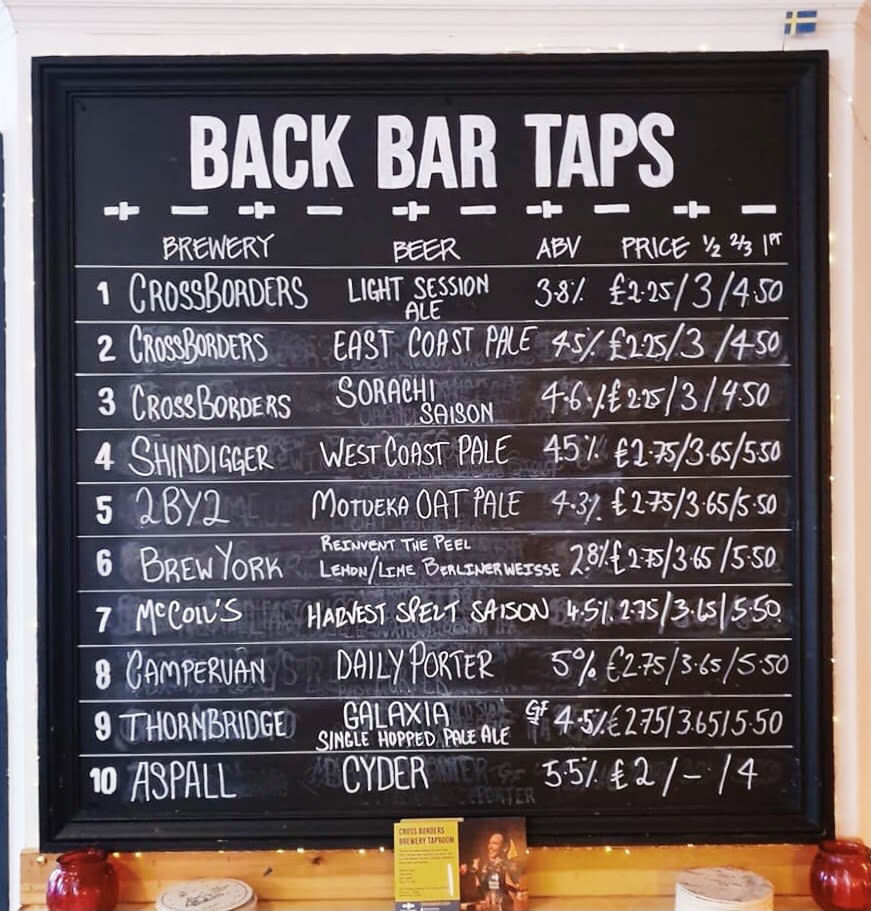 BACK BAR TAPS
BREWERY BEER ABV PRICE ½ ⅔ 1PT
1 CROSSBORDERS LIGHT SESSION ALE 3.8% £2.25/3/4.50
2 CROSSBORDERS EAST COAST PALE 4.5% £2.25/3/4.50
3 CROSSBORDERS SORACHI SAISON 4.6% £2.25/3/4.50
4 SHINDIGGER WEST COAST PALE 4.5% £2.75/3.65/5.50
5 2BY2 MOTUEKA OAT PALE 4.3% £2.75/3.65/5.50
6 BREW YORK REINVENT THE PEEL LEMON/LIME BERLINERWEISSE 2.8% £2.75/3.65/5.50
7 McCOIL'S HARVEST SPELT SAISON 4.5% 2.75/3.65/5.50
8 CAMPERVAN DAILY PORTER 5% £2.75/3.65/5.50
9 THORNBRIDGE GALAXIA SINGLE HOPPED PALE ALE GF 4.5% £2.75/3.65/5.50
10 ASPALL CYDER 5.5% £2/-/4
CROSS BORDERS
BREWERY TAPROOM